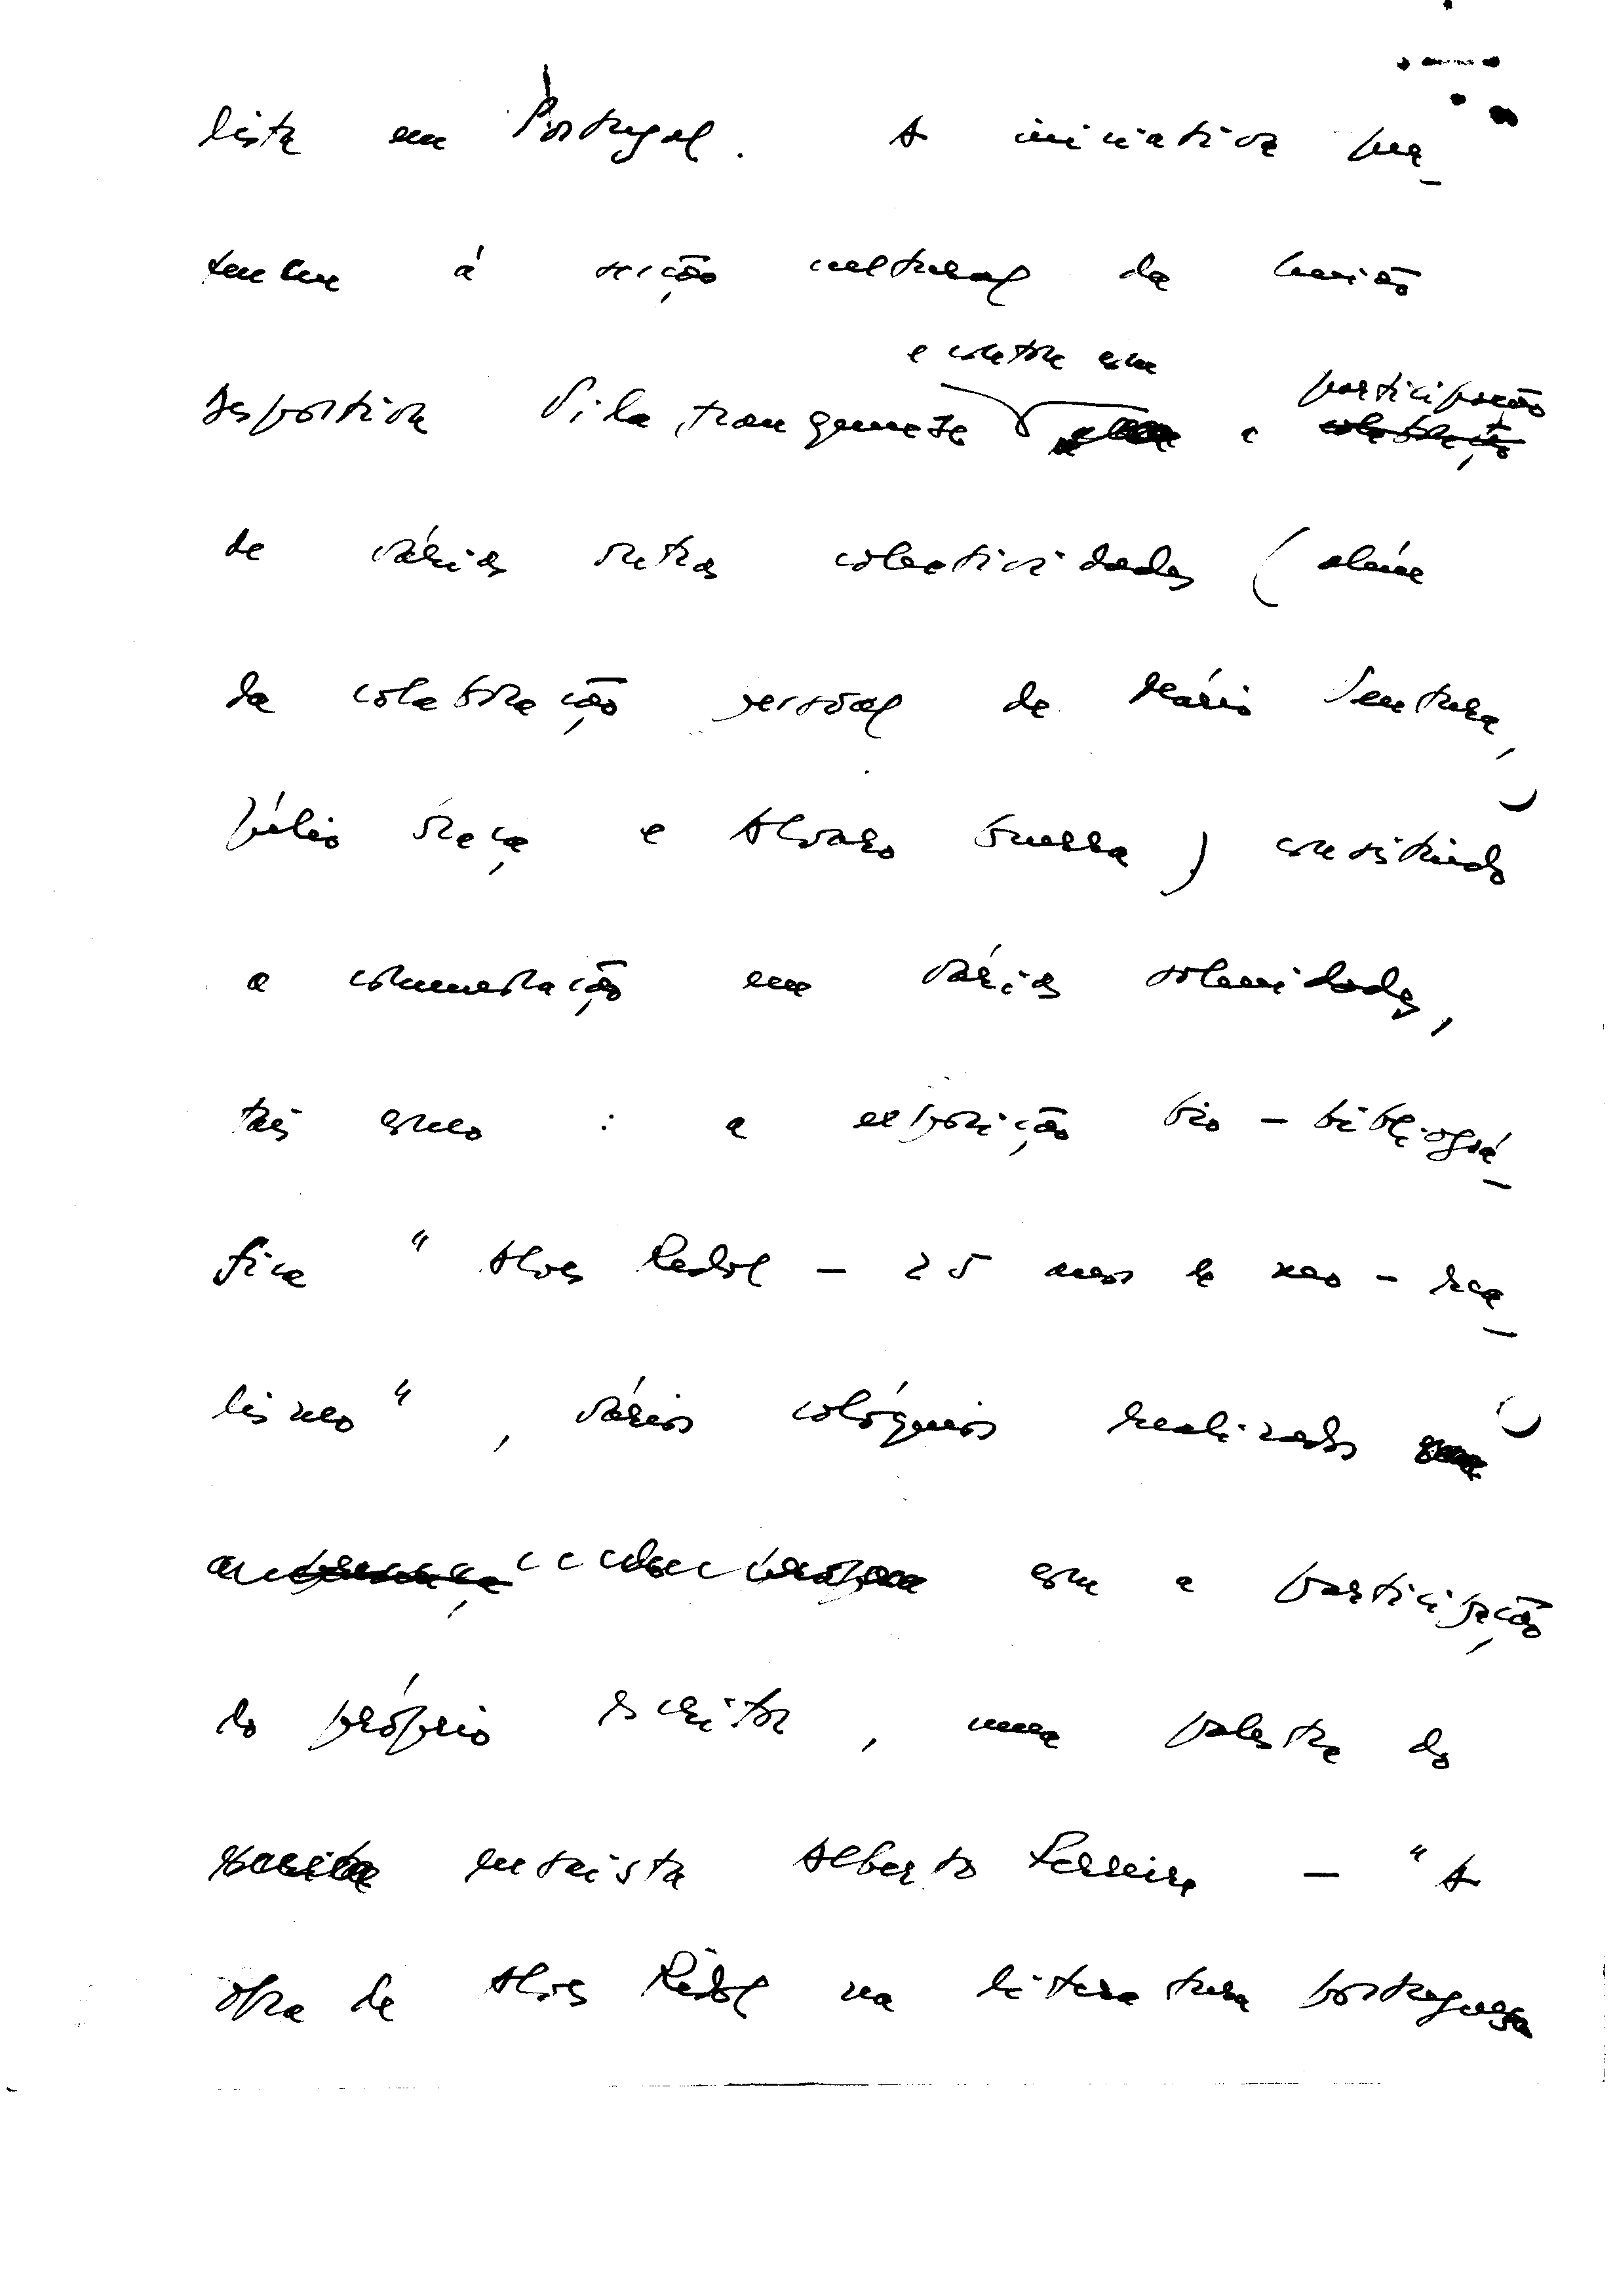 lista em Portugal. A iniciativa per-
tenceu à secção cultural da União
e contou com participação
Desportiva Vilafranquense e
de várias outras colectividades (além
da colaboração pessoal de Mário Ventura,
Júlio Graça e Alvaro Guerra) consistindo
a comemoração em várias solenidades,
tais como : a exposição bio-bibliográ-
fica "Alves Redol - 25 anos de neo-rea-
lismo", vários colóquios realizados
com a participação
do próprio escritor, uma palestra do
ensaista Alberto Ferreira - "A
obra de Alves Redol na literatura portuguesa